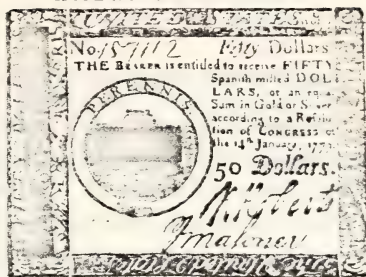 UNITED STATES
No. 157112 Fifty Dollars
THE BEARER is entitled to receive FIFTY
Spanish milled DOL
LARS, or an equal
Sum in Gold or Silver
according to a Resolu
tion of CONGRESS of
the 14th January, 1779.
PERENNIS
50 Dollars.